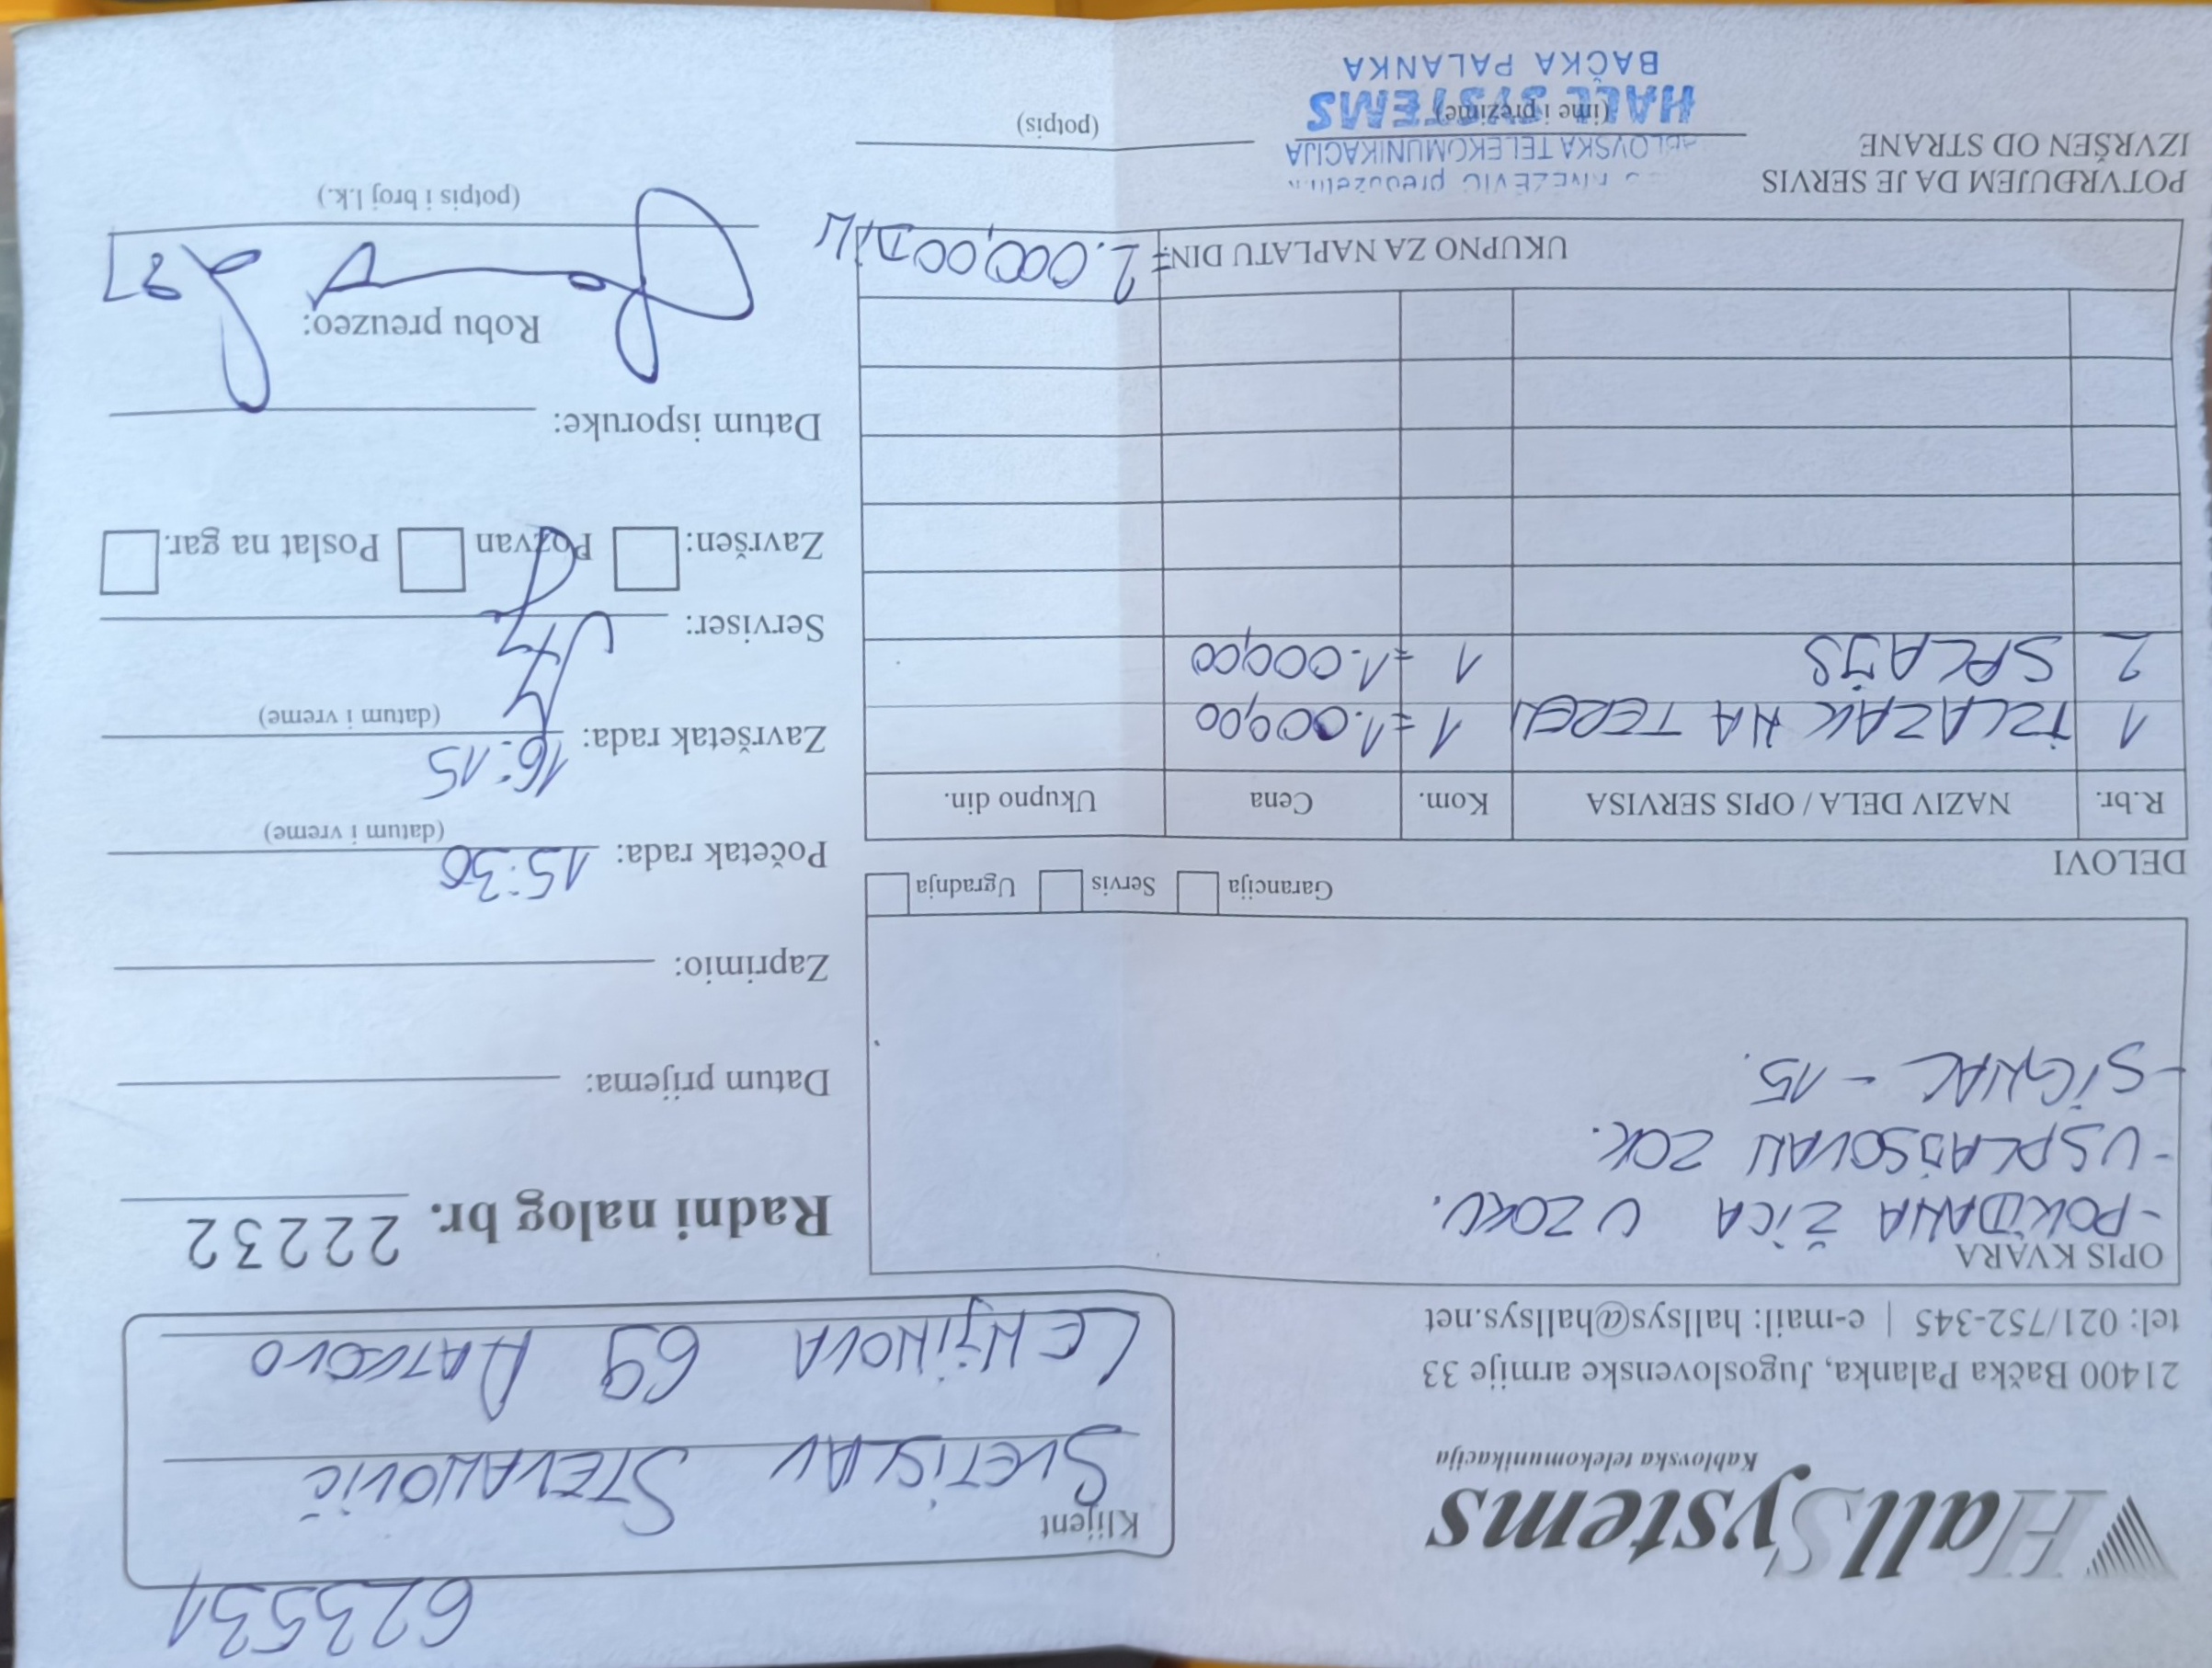 623531
HallSystems
Kablovska telekomunikacija
21400 Bačka Palanka, Jugoslovenske armije 33
tel: 021/752-345 | e-mail: hallsys@hallsys.net
Klijent
SVETISLAV STEVANOVIĆ
LENJINOVA 69 RATKOVO
OPIS KVARA
-POKIDANA ŽICA U ZOKU.
-USPLAJSOVAN ZOK.
-SIGNAL -15.
Radni nalog br. 22232
Datum prijema:
Zaprimio:
Garancija Servis Ugradnja
DELOVI
R.br. NAZIV DELA / OPIS SERVISA Kom. Cena Ukupno din.
1 IZLAZAK NA TEREN 1 =1.000,00
2 SPLAJS 1 =1.000,00
UKUPNO ZA NAPLATU DIN. =2.000,00 DIN
Početak rada: 15:30
(datum i vreme)
Završetak rada: 16:15
(datum i vreme)
Serviser:
Završen: Pozvan Poslat na gar.
Datum isporuke:
Robu preuzeo:
(potpis i broj l.k.)
POTVRĐUJEM DA JE SERVIS
IZVRŠEN OD STRANE
(ime i prezime)
(potpis)
TELEKOMUNIKACIJA
HALL SYSTEMS
BAČKA PALANKA